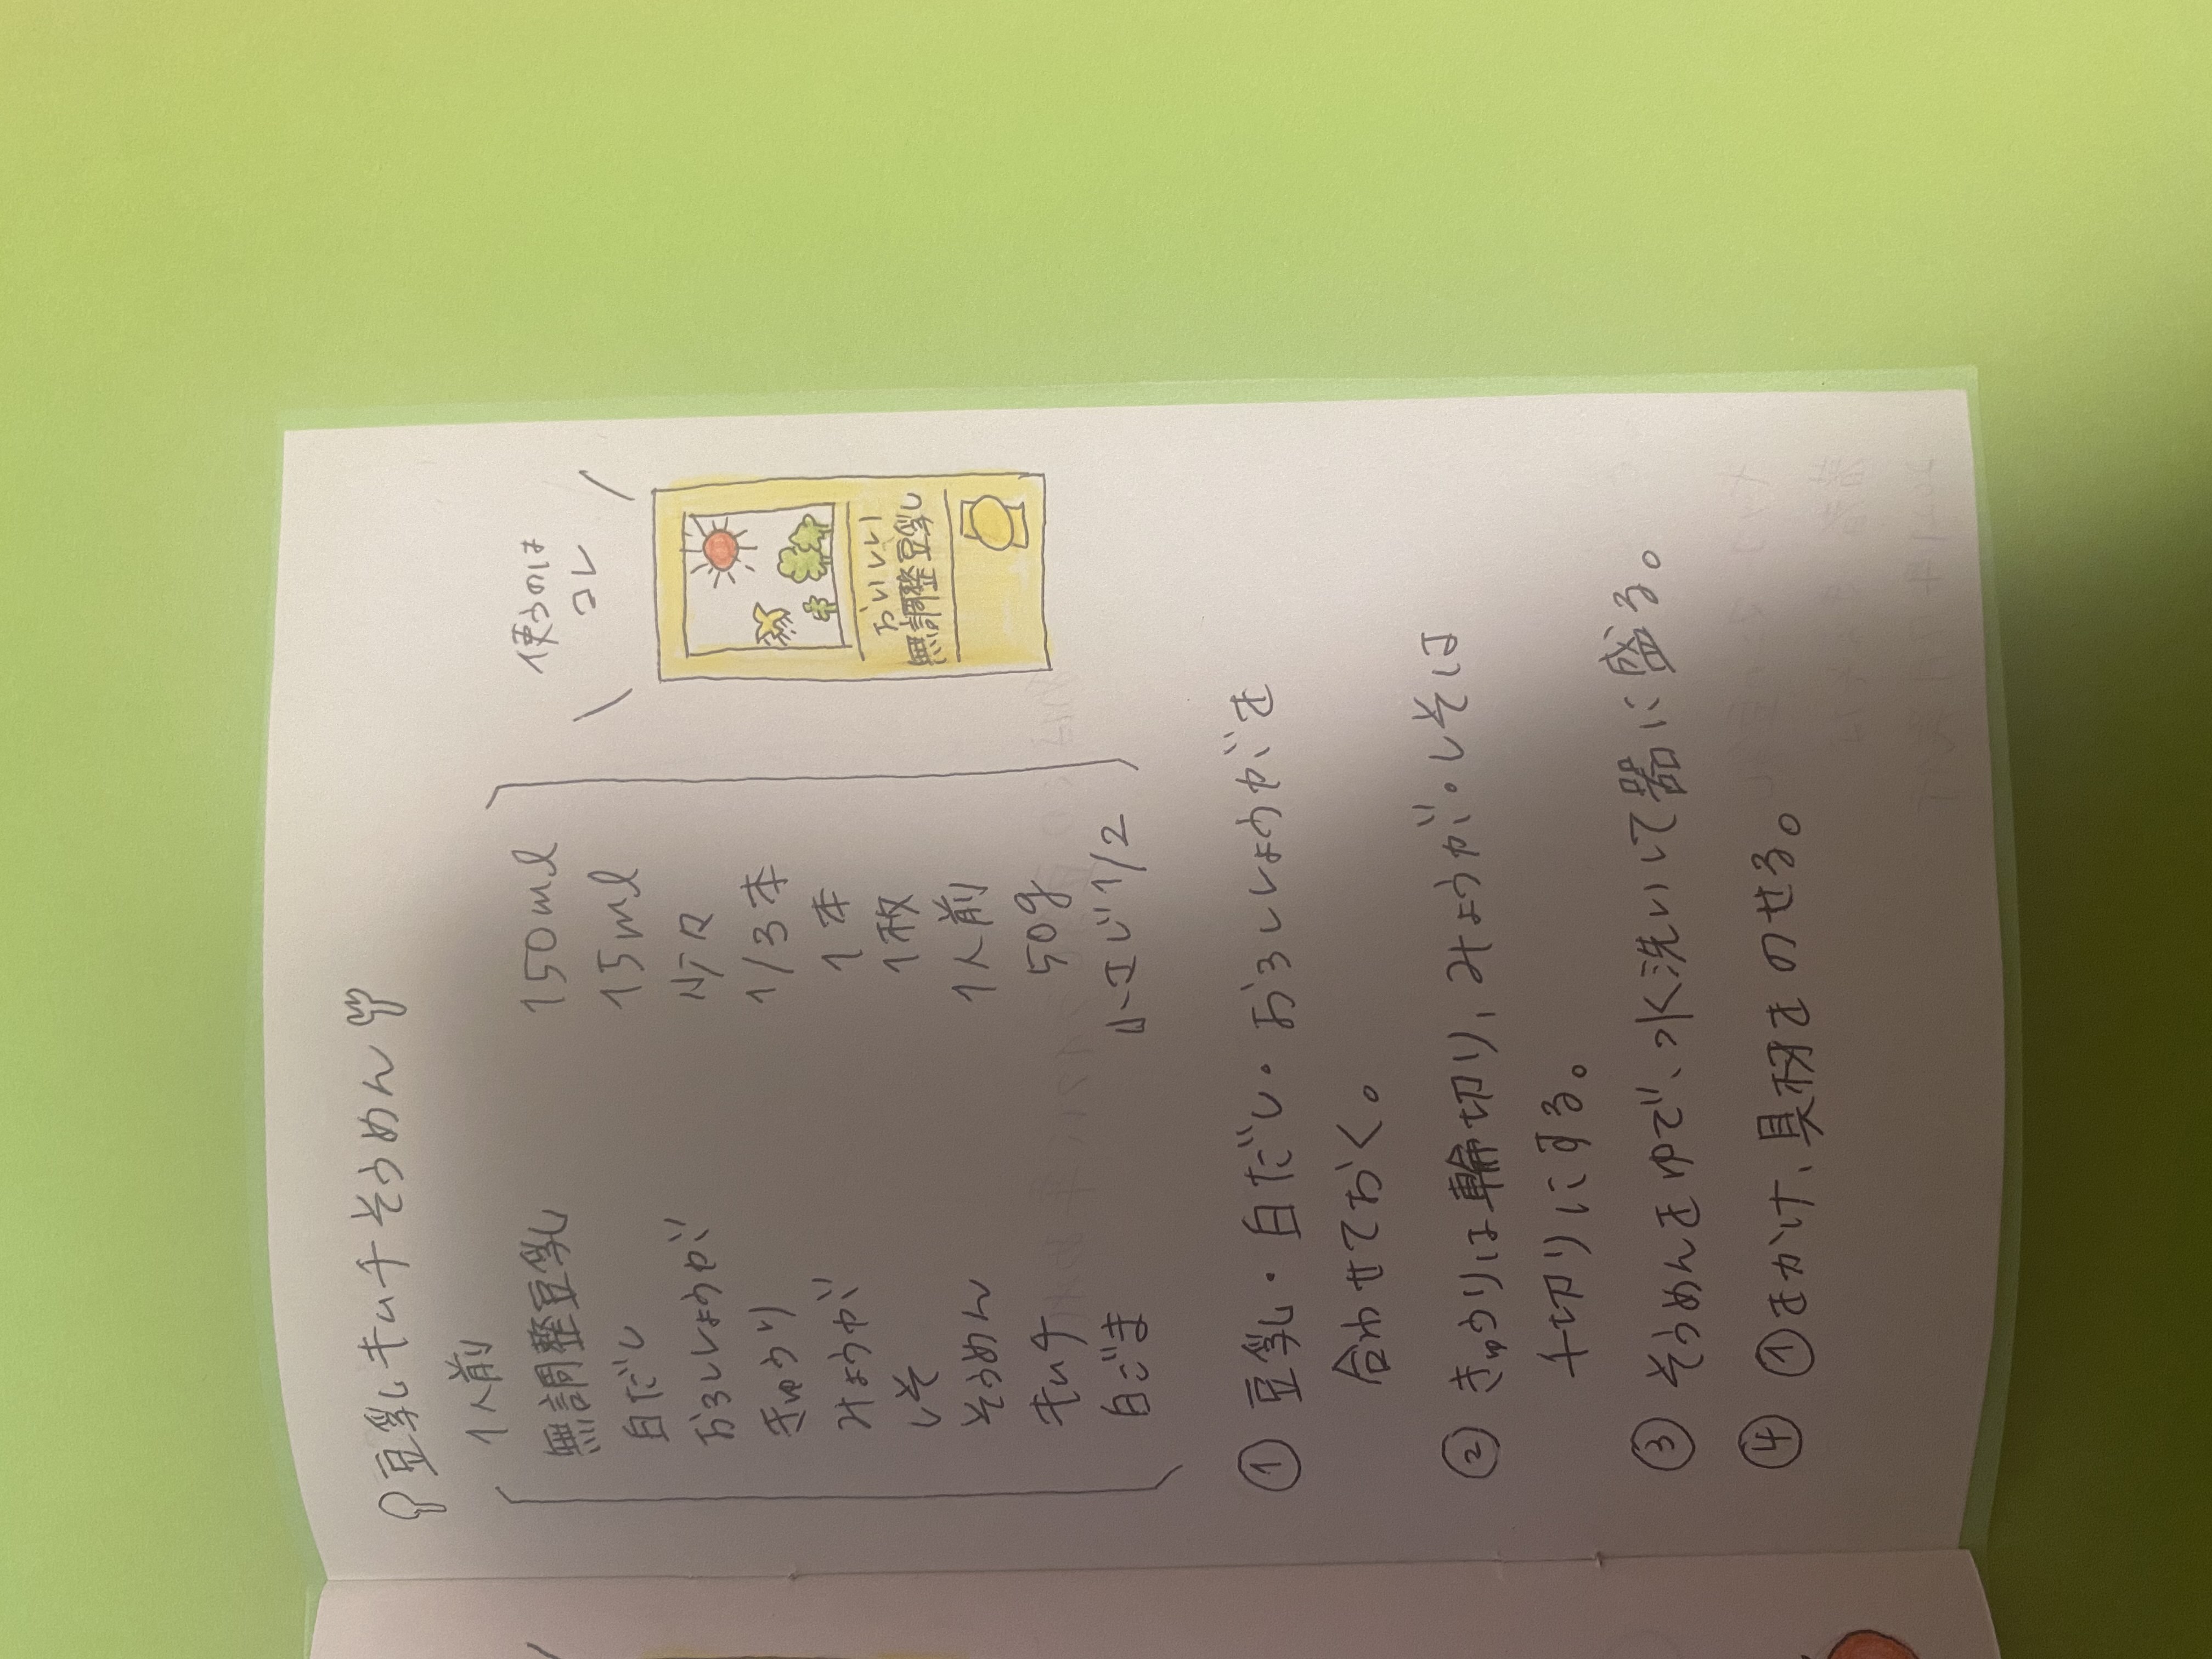 豆乳キムチそうめん
1人前
無調整豆乳 150ml
白だし 15ml
おろししょうが 少々
きゅうり 1/3本
みょうが 1本
しそ 1枚
そうめん 1人前
キムチ 50g
白ごま 小さじ1/2
使うのは
コレ
おいしい
無調整豆乳
① 豆乳・白だし・おろししょうがを
合わせておく。
② きゅうりは輪切り、みょうが・しそは
千切りにする。
③ そうめんをゆで、水洗いして器に盛る。
④ ①をかけ、具材をのせる。